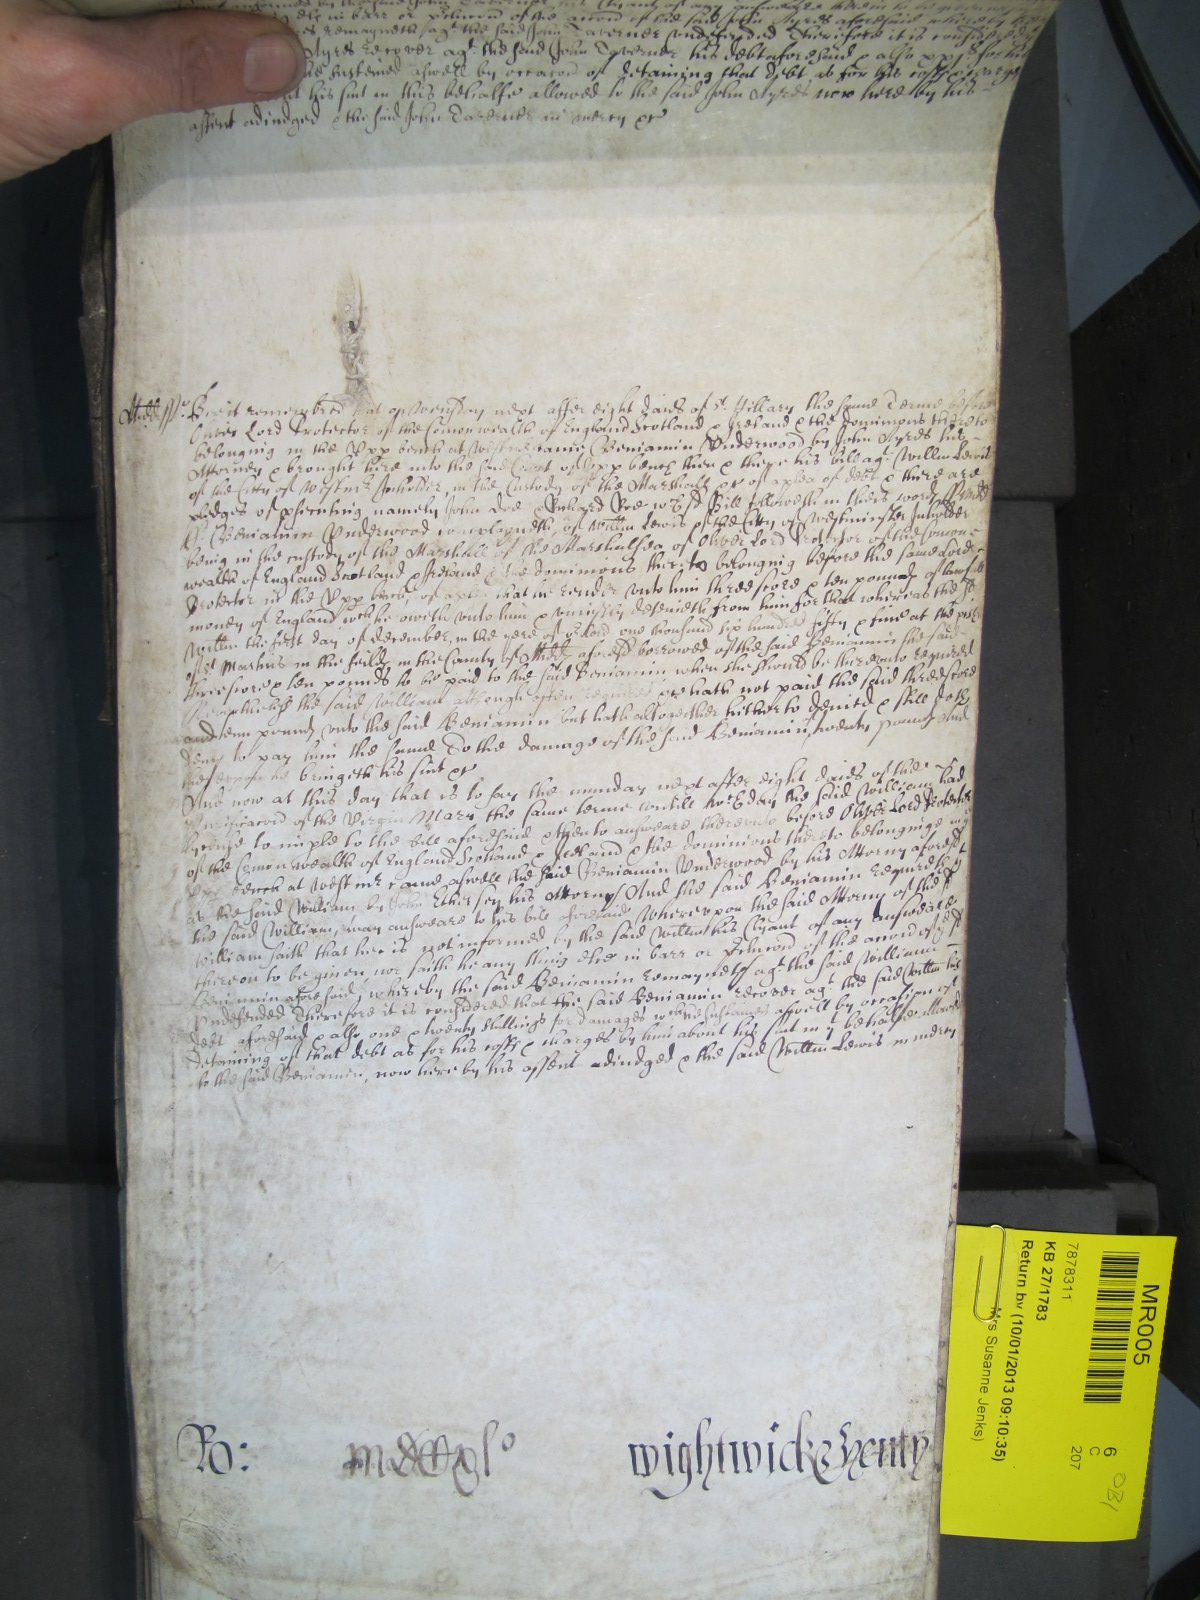 es remayneth agt the said John Taverner undefended Therefore it is considered
Ayres recover agt the said John Taverner his debt aforesaid & also
sustained aswell by occacon of detayning that debt as for his costs & charges
his suit in this behalfe allowed to the said John Ayres now here by his
assent adiudged & the said John Taverner in mercy &c
Midd ss. Bee it remembred that on Munday next after eight daies of St. Hillary the same Terme before
Oliver Lord Protector of the Comonwealth of England Scotland & Ireland & the dominions thereto
belonging in the Upp bench at Westmr came Benjamin Underwood by John Ayres his
Attorney & brought here into the said Court of Upp bench then & there his bill agt Willm Lewis
of the City of Westmr Inholder, in the Custody of the Marshall &c of a plea of debt & there are
pledges of psecuting namely John Doe & Richard Roe wch sd Bill followeth in theis words Midd
ss Benjamin Underwood complayneth of Willm Lewis of the Citty of Westminster Inholder
being in the custody of the Marshall of the Marshalsea of Oliver Lord Protector of the Comon
wealth of England Scotland & Ireland & the dominions thereto belonging before the same Lord
Protector in the Upp bench, of a plea that he render unto him threescore & ten pounds of lawfull
money of England wch he oweth unto him & uniustly deteineth from him for that whereas the sd
Willm the first day of December, in the yere of or Lord one thousand six hundred fifty & five at the pish
of St Martins in the feilds in the County of Midd aforesd borrowed of the said Benjamin the said
threescore & ten pounds to be paid to the said Benjamin when he should be thereunto required
Neverthelesse the said William although often required &c hath not paid the said threescore
and tenn pounds unto the said Benjamin but hath altogether hitherto denied & still doth
deny to pay him the same To the damage of the said Benjamin, twenty pounds And
therefore he bringeth his suit &c
And now at this day that is to say the munday next after eight daies of the
Purificacon of the Virgin Mary the same terme untill wch day the said William had
lycense to imple to the bill aforesaid & then to answeare thereunto before Oliver Lord Protector
of the Comonwealth of England Scotland & Ireland & the dominions thereto belonginge in the
Upp bench at Westmr came aswell the said Benjamin Underwood by his Attorny aforesd
as the said William by John his Attorny And the said Benjamin requireth yt
the said William, may answeare to his bill aforesaid Whereupon the said Attorny of the sd
William saith that hee is not informed by the said Willm his Clyant of any answeare
thereon to be given, nor saith he any thing else in barr or pclucon of the accon of ye sd
Benjamin aforesaid, whereby the said Benjamin remayneth agt the said William
undefended Therefore it is considered that the said Benjamin recover agt the said Willm his
debt aforesaid & also one & twenty shillings for damages wch he sustained aswell by occasion of
detaining of that debt as for his costs & charges by him about his suit in yt behalfe allowed
to the said Benjamin, now here by his assent adiudged & the said Willm Lewis in mercy
Ro:
wightwick & henly
MR005
6
C
207
OBI
7878311
KB 27/1783
Return by (10/01/2013 09:10:35)
Mrs Susanne Jenks)